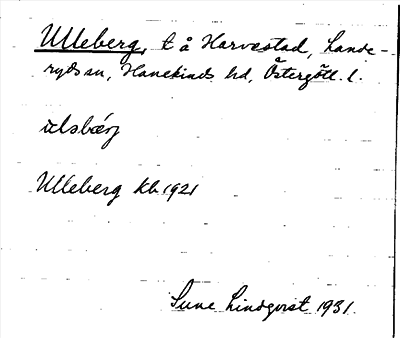 Ulleberg, t å Harvestad, Lande-
ryds sn, Hanekinds hd, Östergötl. l.
Ulleberg kb 1921
Sune Lindqvist 1931.